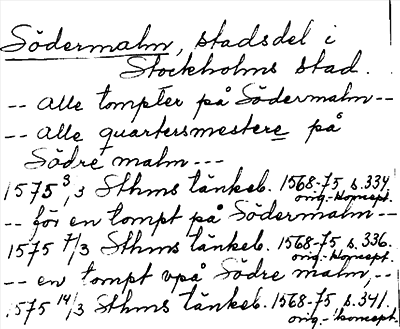 Södermalm, stadsdel i
Stockholms stad.
-- alle tompter på Södermalm --
-- alle quartersmestere på
Södre malm ---
1575 3/3 Sthms tänkeb. 1568-75 s.334
orig.-koncept.
-- för en tompt på Södermalm --
1575 7/3 Sthms tänkeb. 1568-75 s.336.
orig.-koncept.
-- en tompt vpå Södre malm, --
1575 14/3 Sthms tänkeb. 1568-75 s.341.
orig.-koncept.